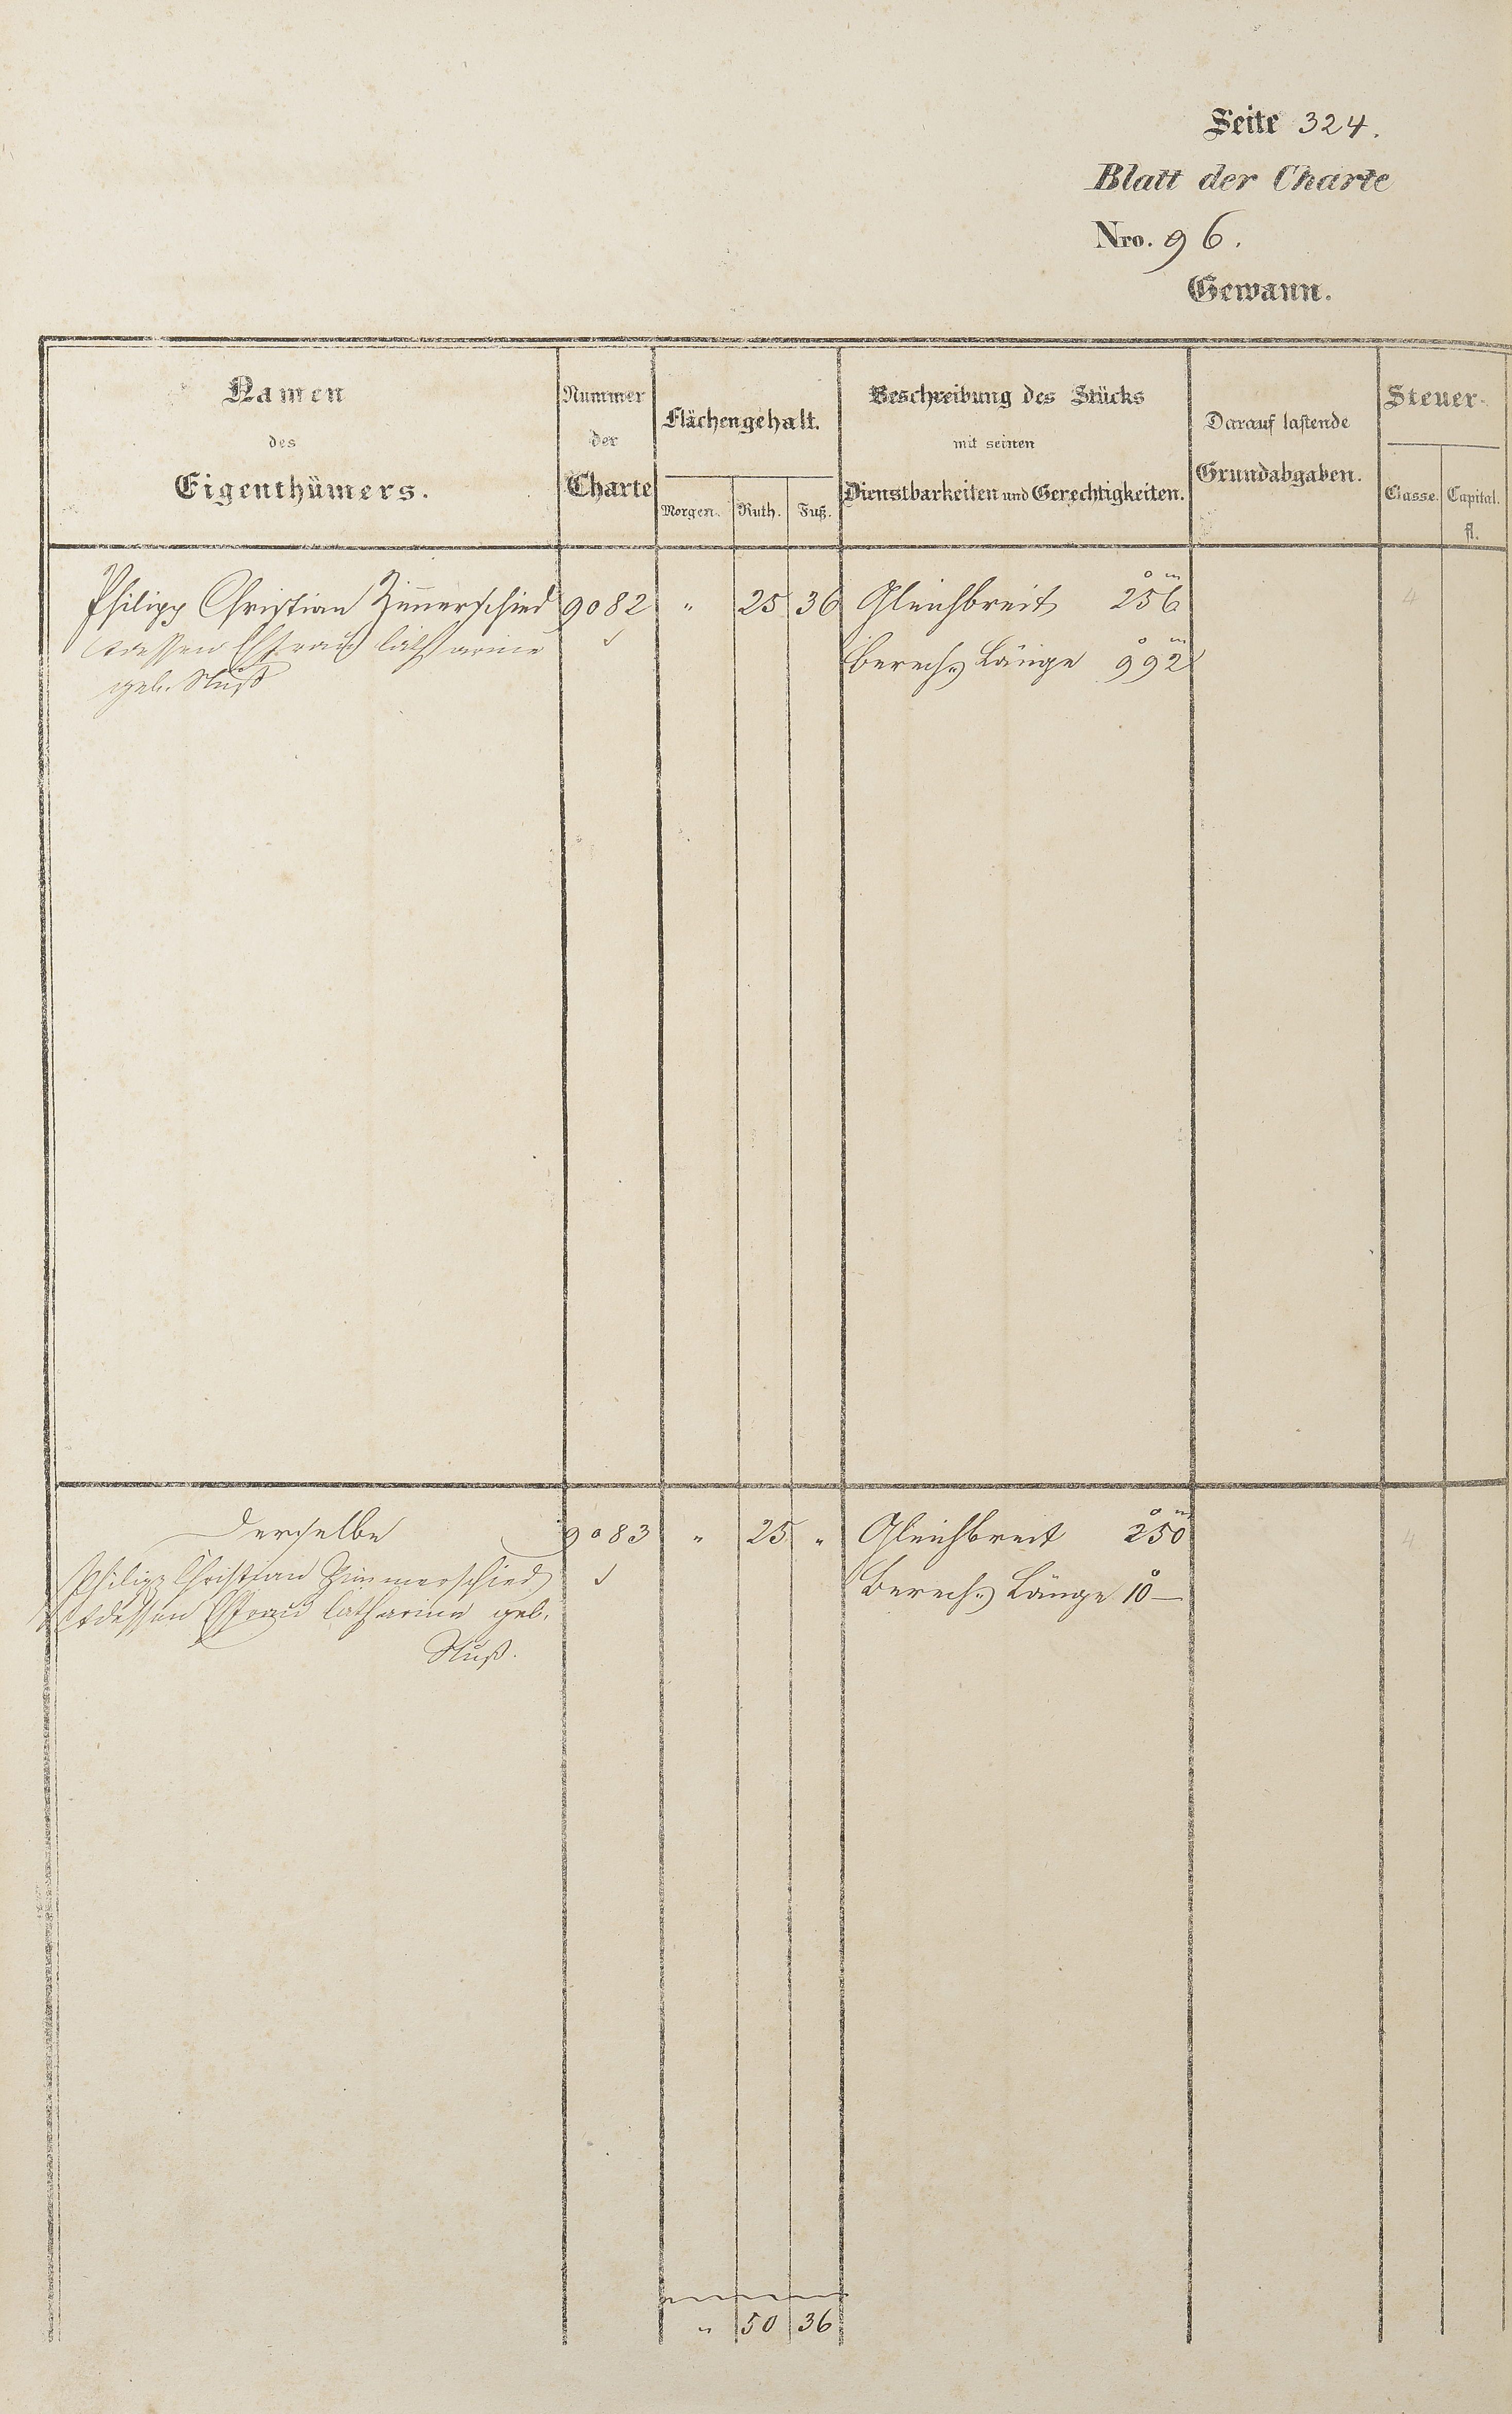 Seite 324.
Blatt der Charte
Nro. 96.
Gewann.
Namen des Eigenthümers.
Nummer der Charte
Flächengehalt.
Morgen. Ruth. Fuß.
Beschreibung des Stücks mit seinen Dienstbarkeiten und Gerechtigkeiten.
Darauf lastende Grundabgaben.
Steuer-
Classe. Capital. fl.
Philipp Christian Zim̅erschied 9082 " 25 36 Gleichbreit 256 4
dessen Ehefrau Catharine berech. Länge 992
geb. Nuß
Derselbe 9083 " 25 " Gleichbreit 250 4
Philipp Christian Zimmerschied berech. Länge 10 —
dessen Ehefrau Catharine geb.
Nuß.
" 50 36